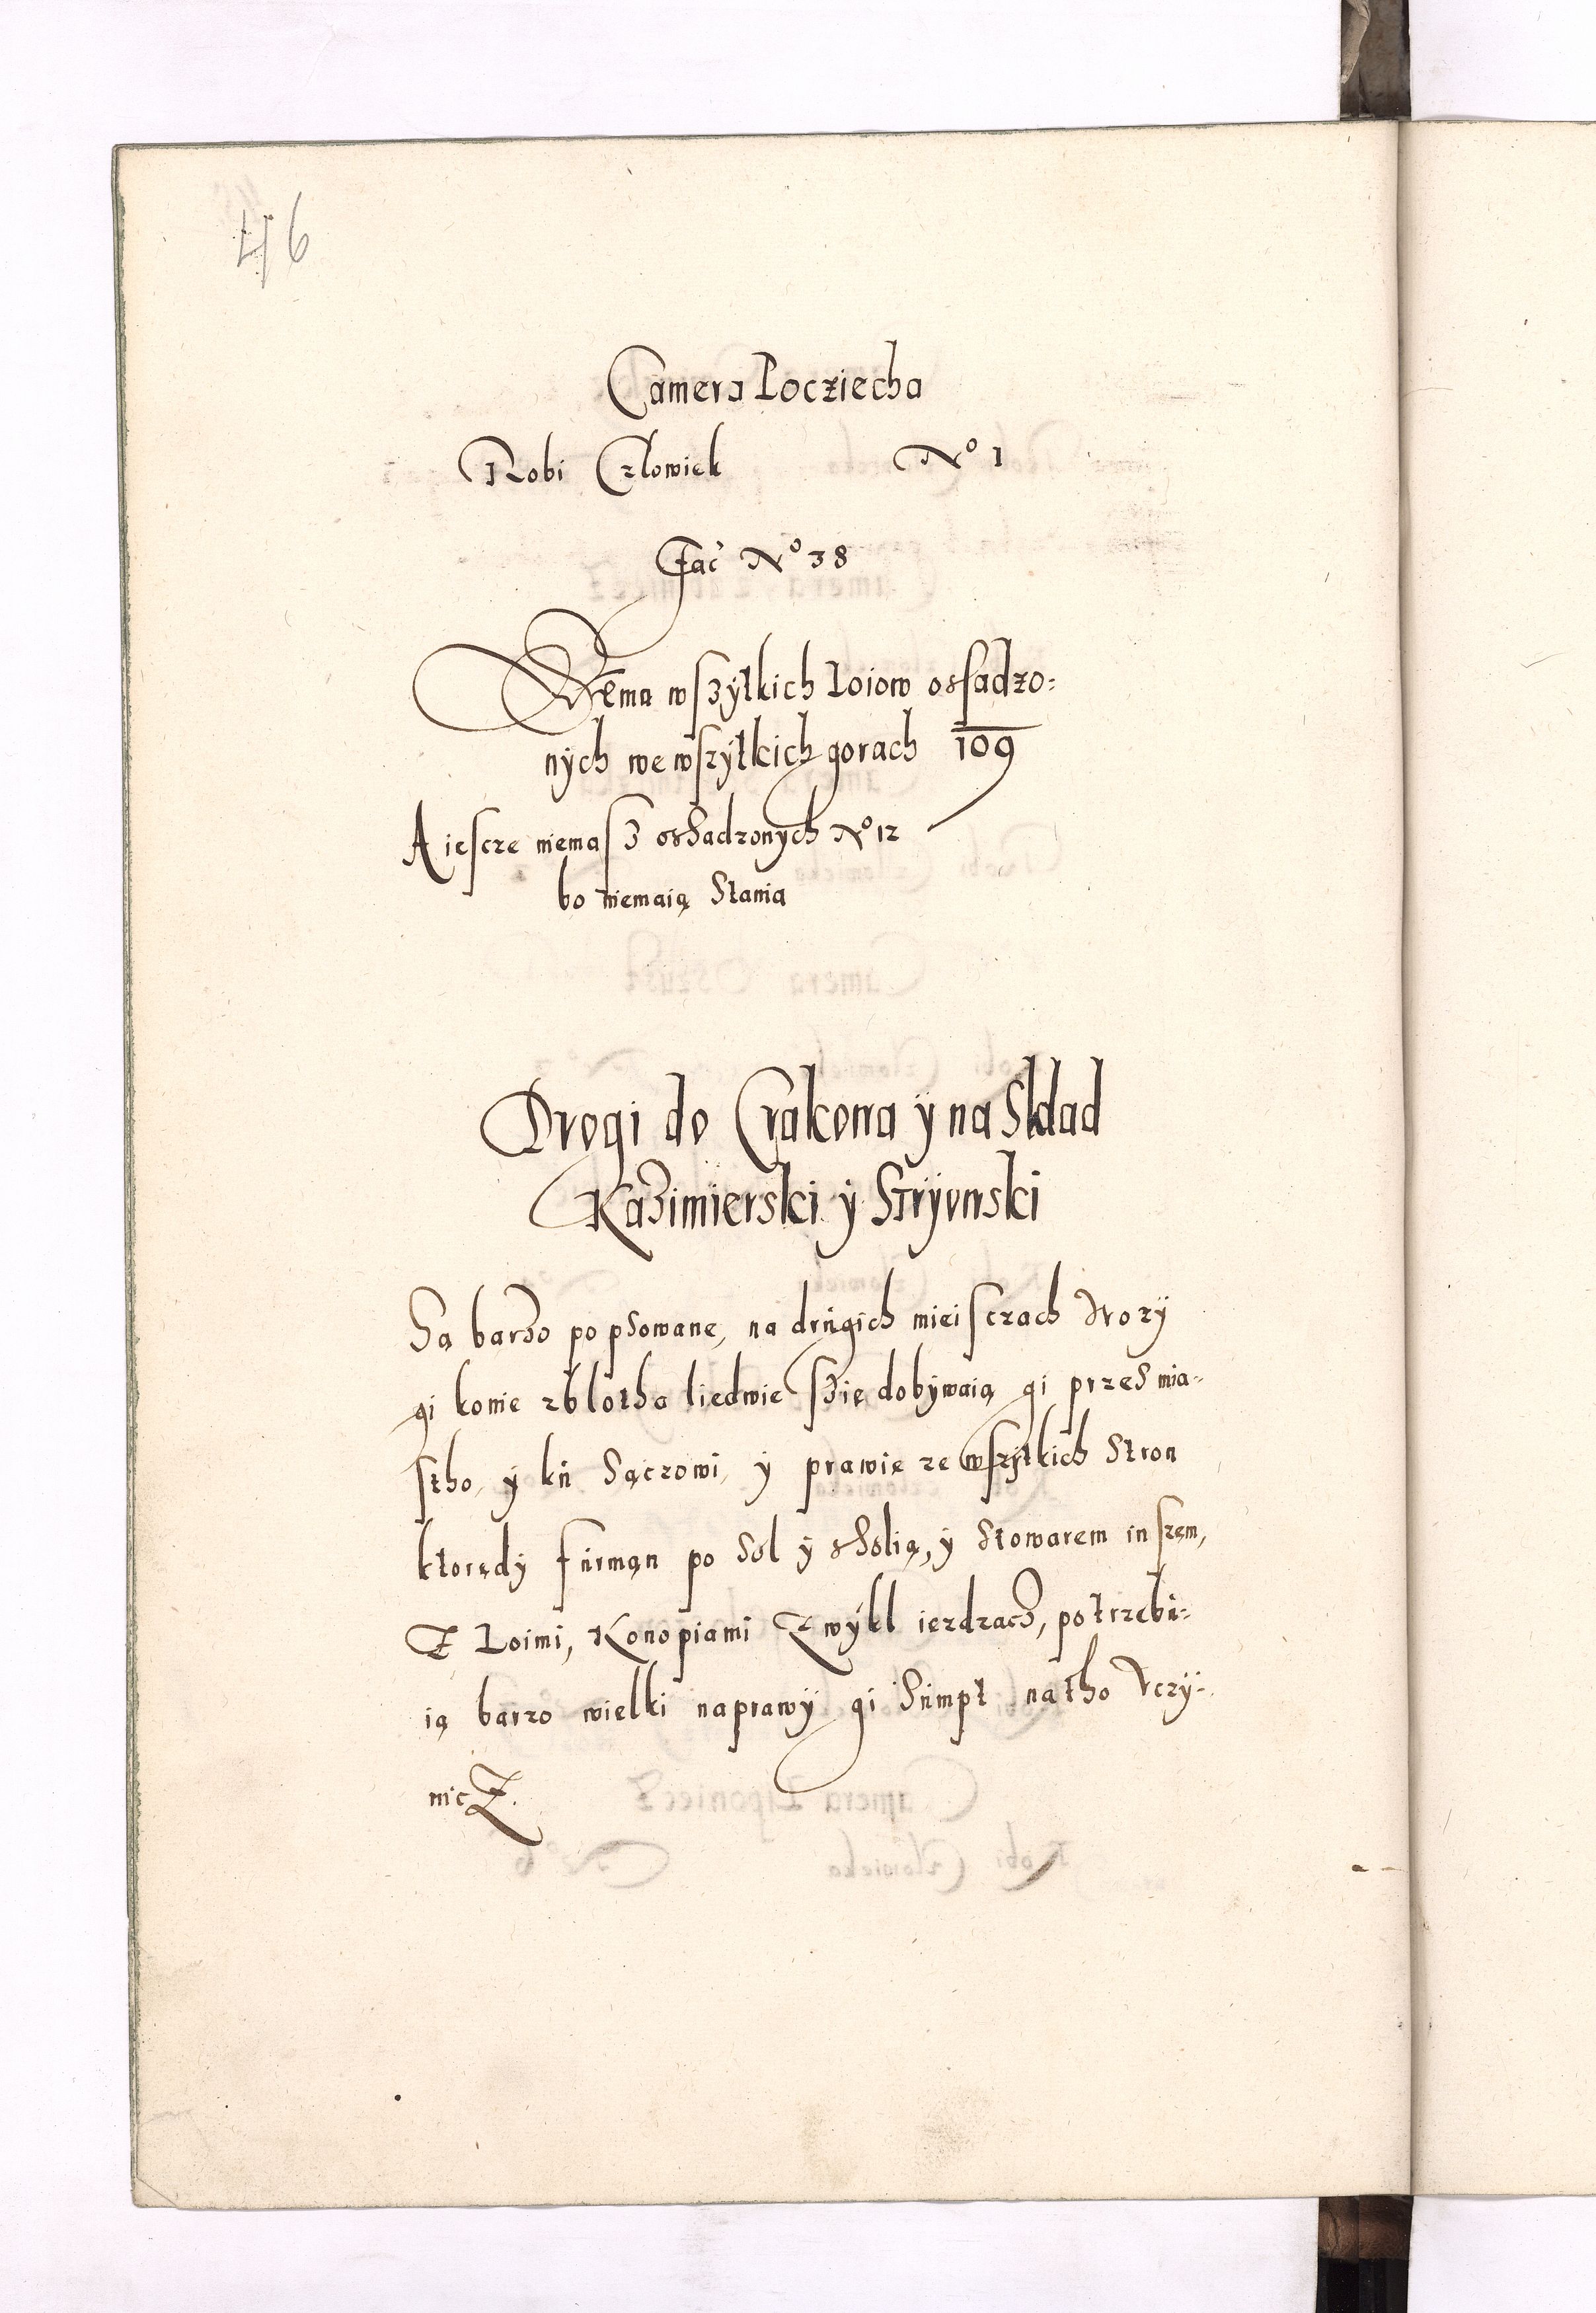 46
Camera Pocziecha
Robi Człowiek Nº 1
Fac Nº 38
Suma wszytkich Loiow ossadzo=
nych we wszytkich gorach 109
A iescze niemasz ossadzonych Nº 12
bo niemaią Stania
Drogi do Crakowa ÿ na Skład
Kazimierski ÿ Stryienski
Są barzo popsowane, na drugich mieisczach wozÿ
gi konie zbłotha liedwie szie dobÿwaią gi przes mia-
stho, ÿ ku Sączowi, ÿ prawie ze wszÿtkich Stron
ktorędÿ furman po Sol ÿ sSolią, ÿ stowarem inszem,
Z Loimi, Konopiami Zwÿkl iezdzacz, potrzebu=
ią barzo wielki naprawÿ gi Sumpt natho Vczÿ-
nicz.